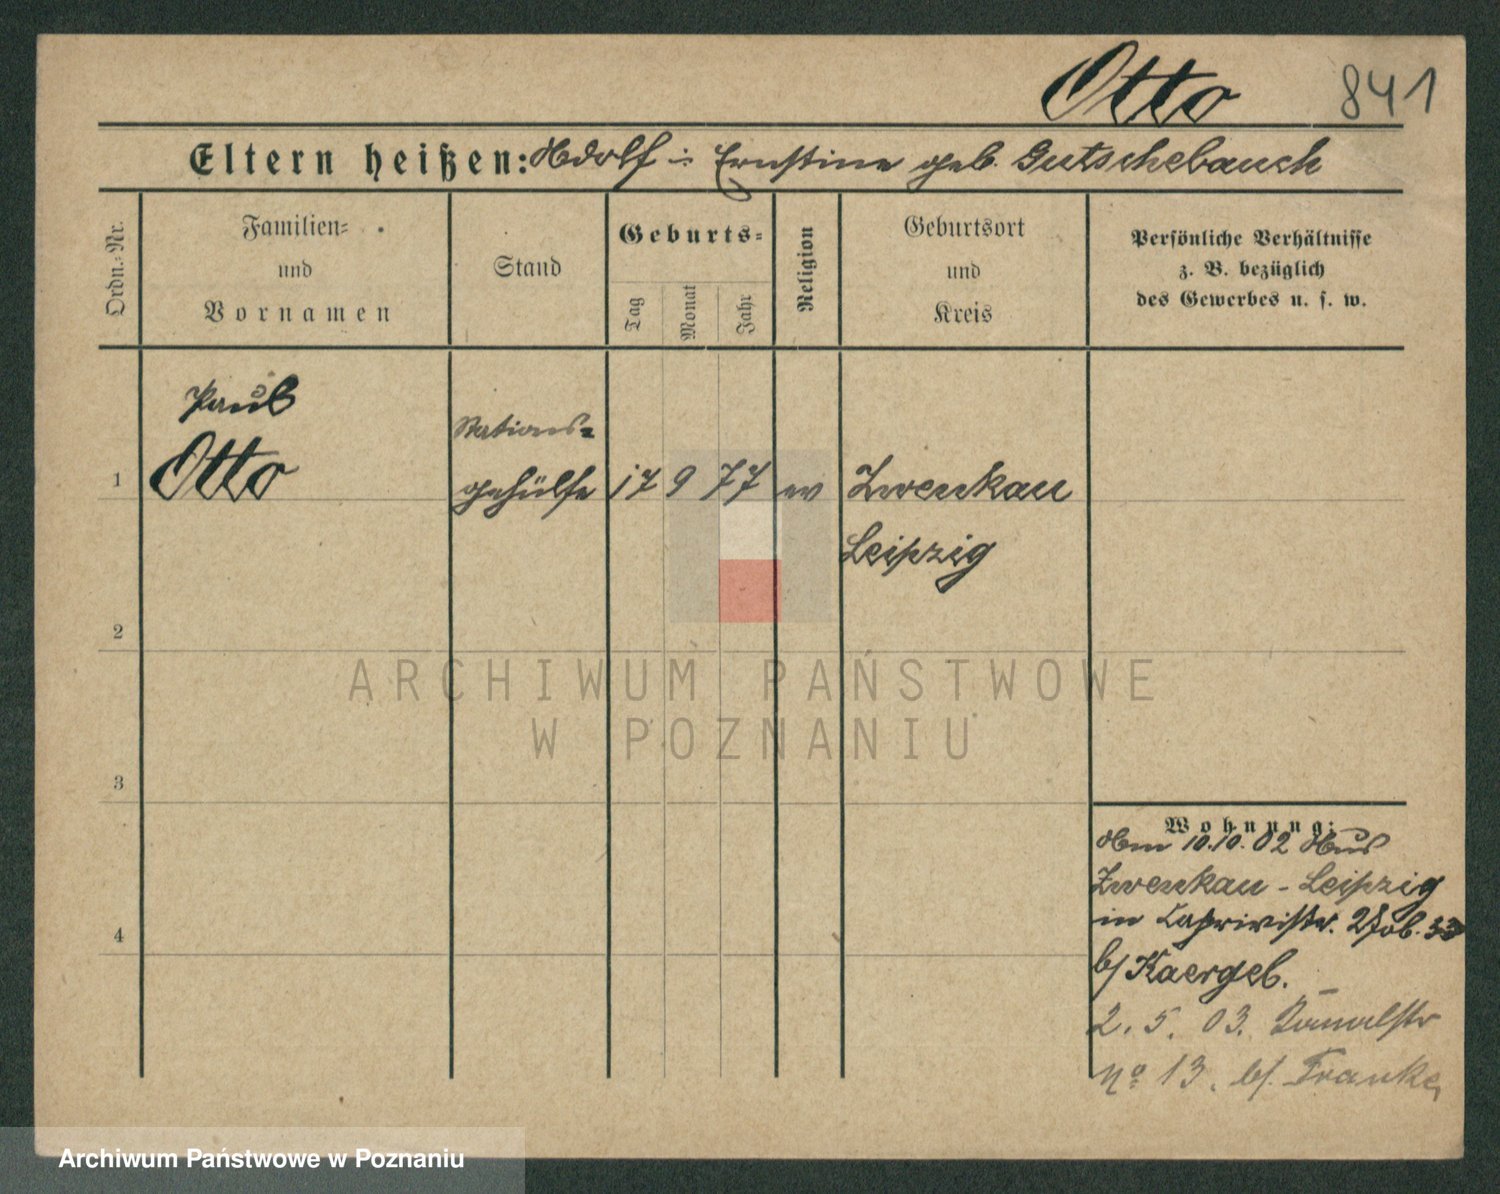 Otto 841
Eltern heißen: Adolf u Ernstine geb. Gutschebauch
Ordn.-Nr.
Familien-
und
Vornamen
Stand
Geburts-
Tag
Monat
Jahr
Religion
Geburtsort
und
Kreis
Persönliche Verhältnisse
z. B. bezüglich
des Gewerbes u. s. w.
Paul
Stations-
1 Otto gehülfe 17 9 77 ev Zwenkau
Leipzig
2
3
4
ARCHIWUM PAŃSTWOWE
W POZNANIU
Wohnung:
Am 10.10.02 Aus
Zwenkau - Leipzig
in Caprivistr. 33
b/ Kaergel.
2. 5. 03.
No 13. b/. Franke
Archiwum Państwowe w Poznaniu